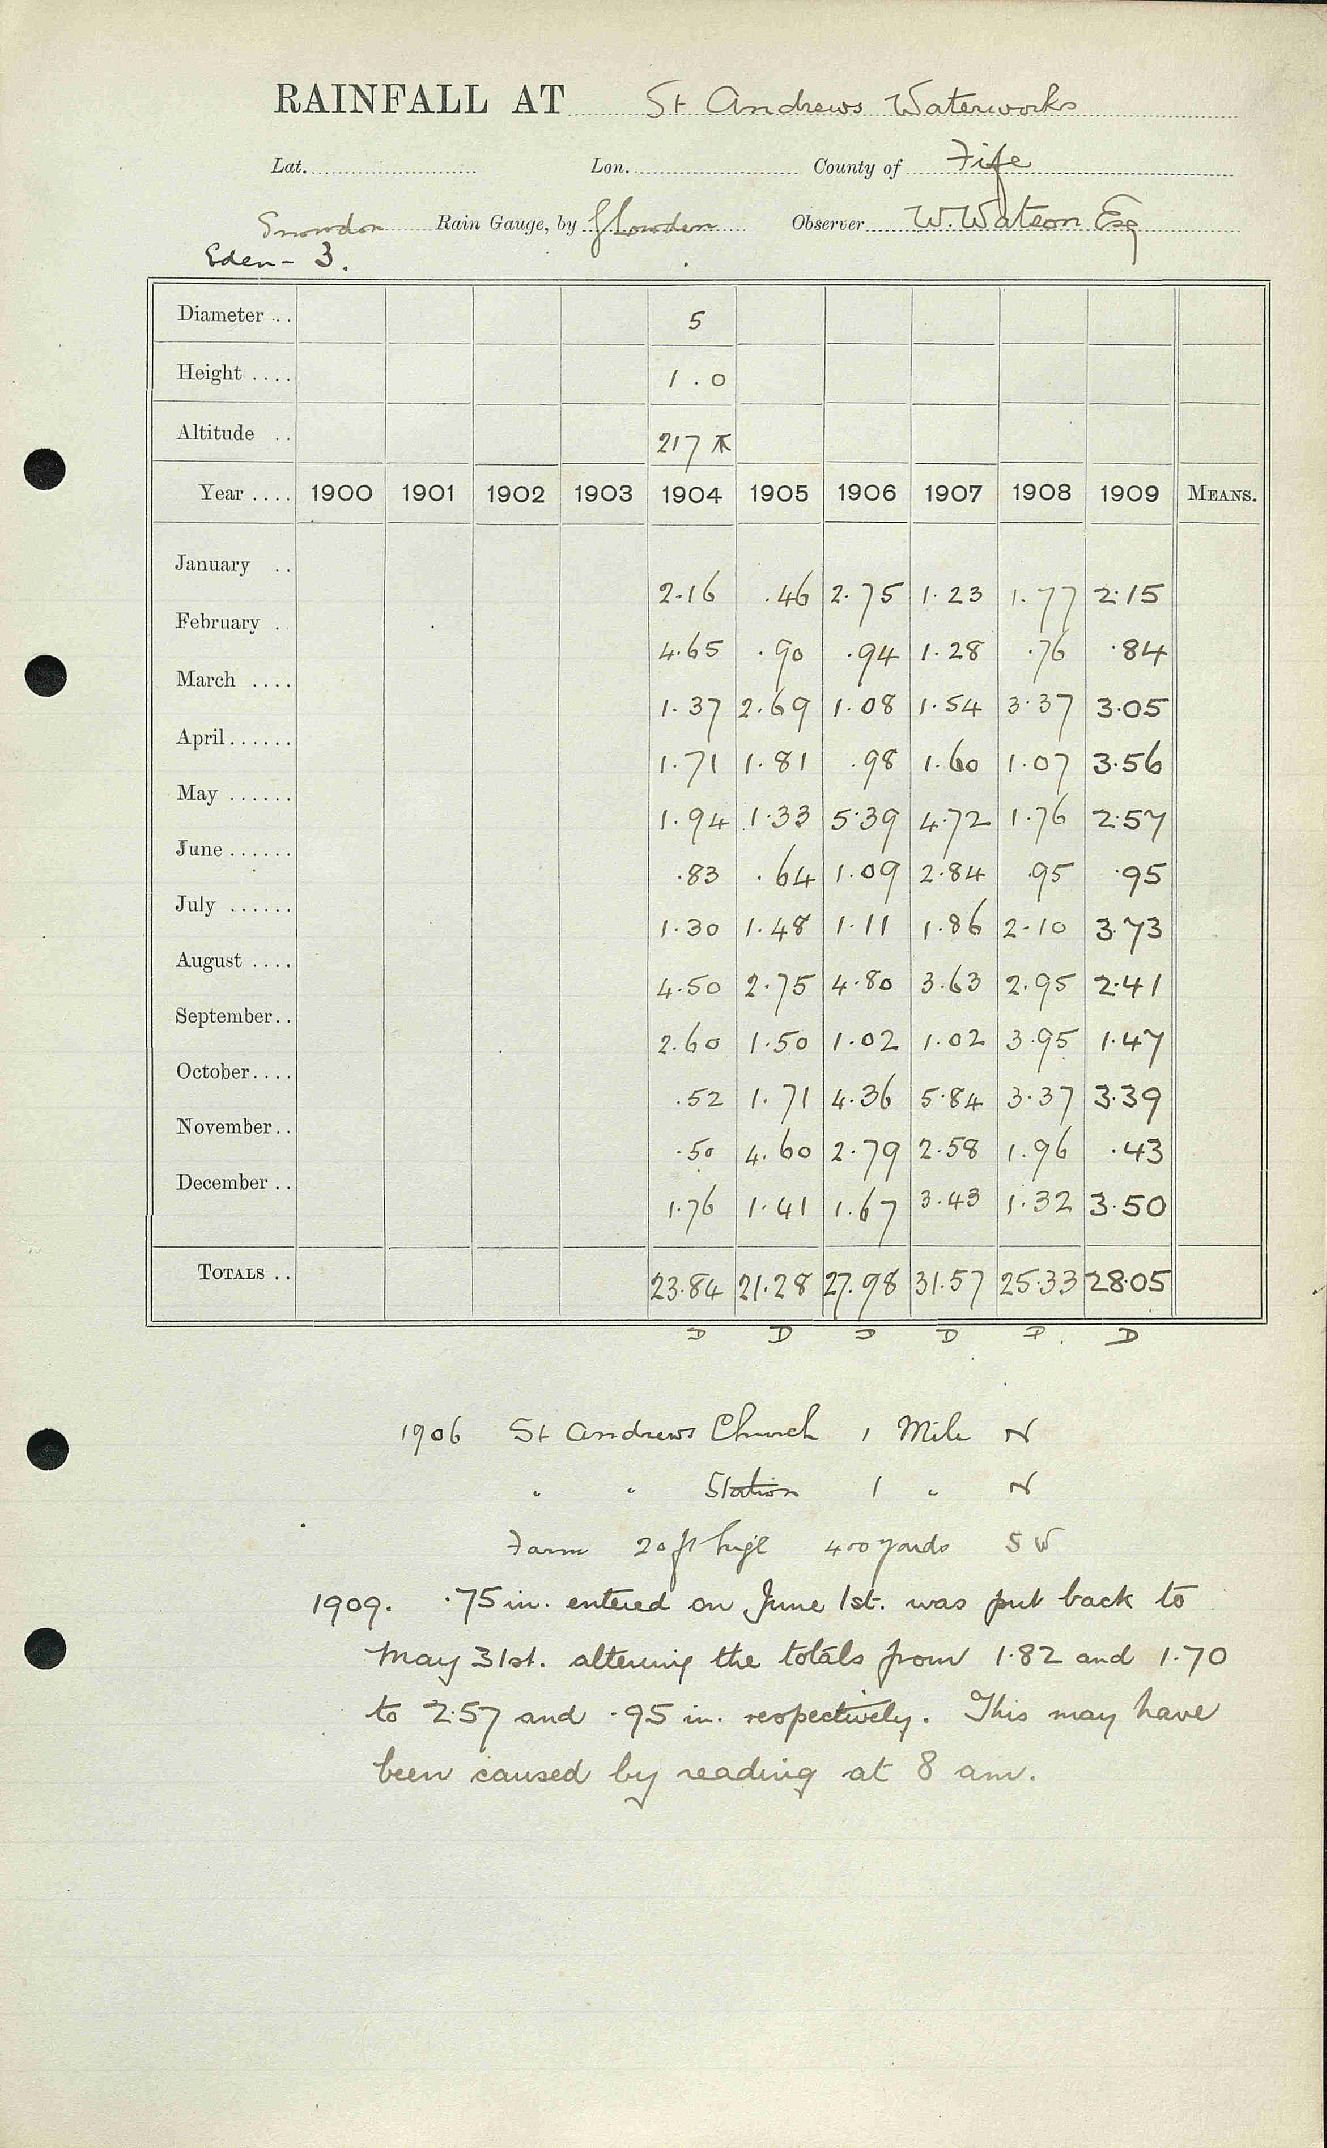 RAINFALL AT St Andrews Waterworks
Lat. Lon. County of Fife
Snowdon Rain Gauge, by Observer W. Watson Esq
Eden - 3.
Diameter .. 5
Height .... 1.0
Altitude .. 217
Year .... 1900 1901 1902 1903 1904 1905 1906 1907 1908 1909 MEANS.
January .. 2.16 .46 2.75 1.23 1.77 2.15
February . 4.65 .90 .94 1.28 .76 .84
March .... 1.37 2.69 1.08 1.54 3.37 3.05
April ...... 1.71 1.81 .98 1.60 1.07 3.56
May ...... 1.94 1.33 5.39 4.72 1.76 2.57
June ...... .83 .64 1.09 2.84 .95 .95
July ...... 1.30 1.48 1.11 1.86 2.10 3.73
August .... 4.50 2.75 4.80 3.63 2.95 2.41
September.. 2.60 1.50 1.02 1.02 3.95 1.47
October.... .52 1.71 4.36 5.84 3.37 3.39
November.. .50 4.60 2.79 2.58 1.96 .43
December .. 1.76 1.41 1.67 3.43 1.32 3.50
TOTALS .. 23.84 21.28 27.98 31.57 25.33 28.05
D D D D D D
1906 St Andrews Church 1 Mile N
" " Station 1 " N
Farm 20 ft high 400 yards SW
1909. .75 in. entered on June 1st. was put back to
May 31st. altering the totals from 1.82 and 1.70
to 2.57 and .95 in. respectively. This may have
been caused by reading at 8 am.